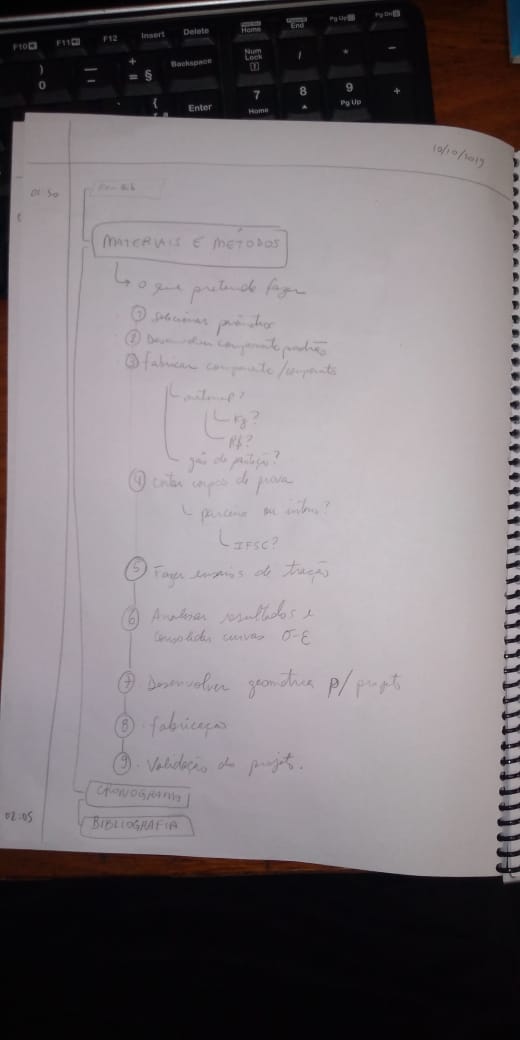 F10 F11 F12 Insert Delete Home End Pg Up Pg Dn
) 0 — + = § Backspace Num Lock / * −
{ Enter 7 Home 8 9 Pg Up +
10/10/2019
01:50
MATERIAIS E MÉTODOS
↳ o que pretendo fazer
① Selecionar parâmetros
② Desenvolver componente padrão
③ Fabricar componente/componente
material?
Kg?
R$?
gás de proteção?
④ Cortar corpos de prova
parceria ou interno?
IFSC?
⑤ Fazer ensaios de tração
⑥ Analisar resultados e
consolidar curvas σ-ε
⑦ Desenvolver geometria p/ projeto
⑧ Fabricação
⑨ Validação do projeto.
CRONOGRAMA
02:05
BIBLIOGRAFIA